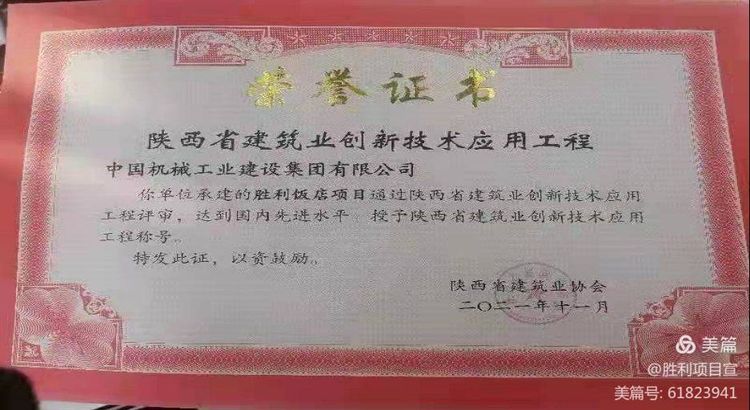 荣誉证书
陕西省建筑业创新技术应用工程
中国机械工业建设集团有限公司
你单位承建的胜利饭店项目通过陕西省建筑业创新技术应用
工程评审，达到国内先进水平。授予陕西省建筑业创新技术应用
工程称号。
特发此证，以资鼓励。
陕西省建筑业协会
二〇二一年十一月
美篇
@胜利项目宣
美篇号: 61823941